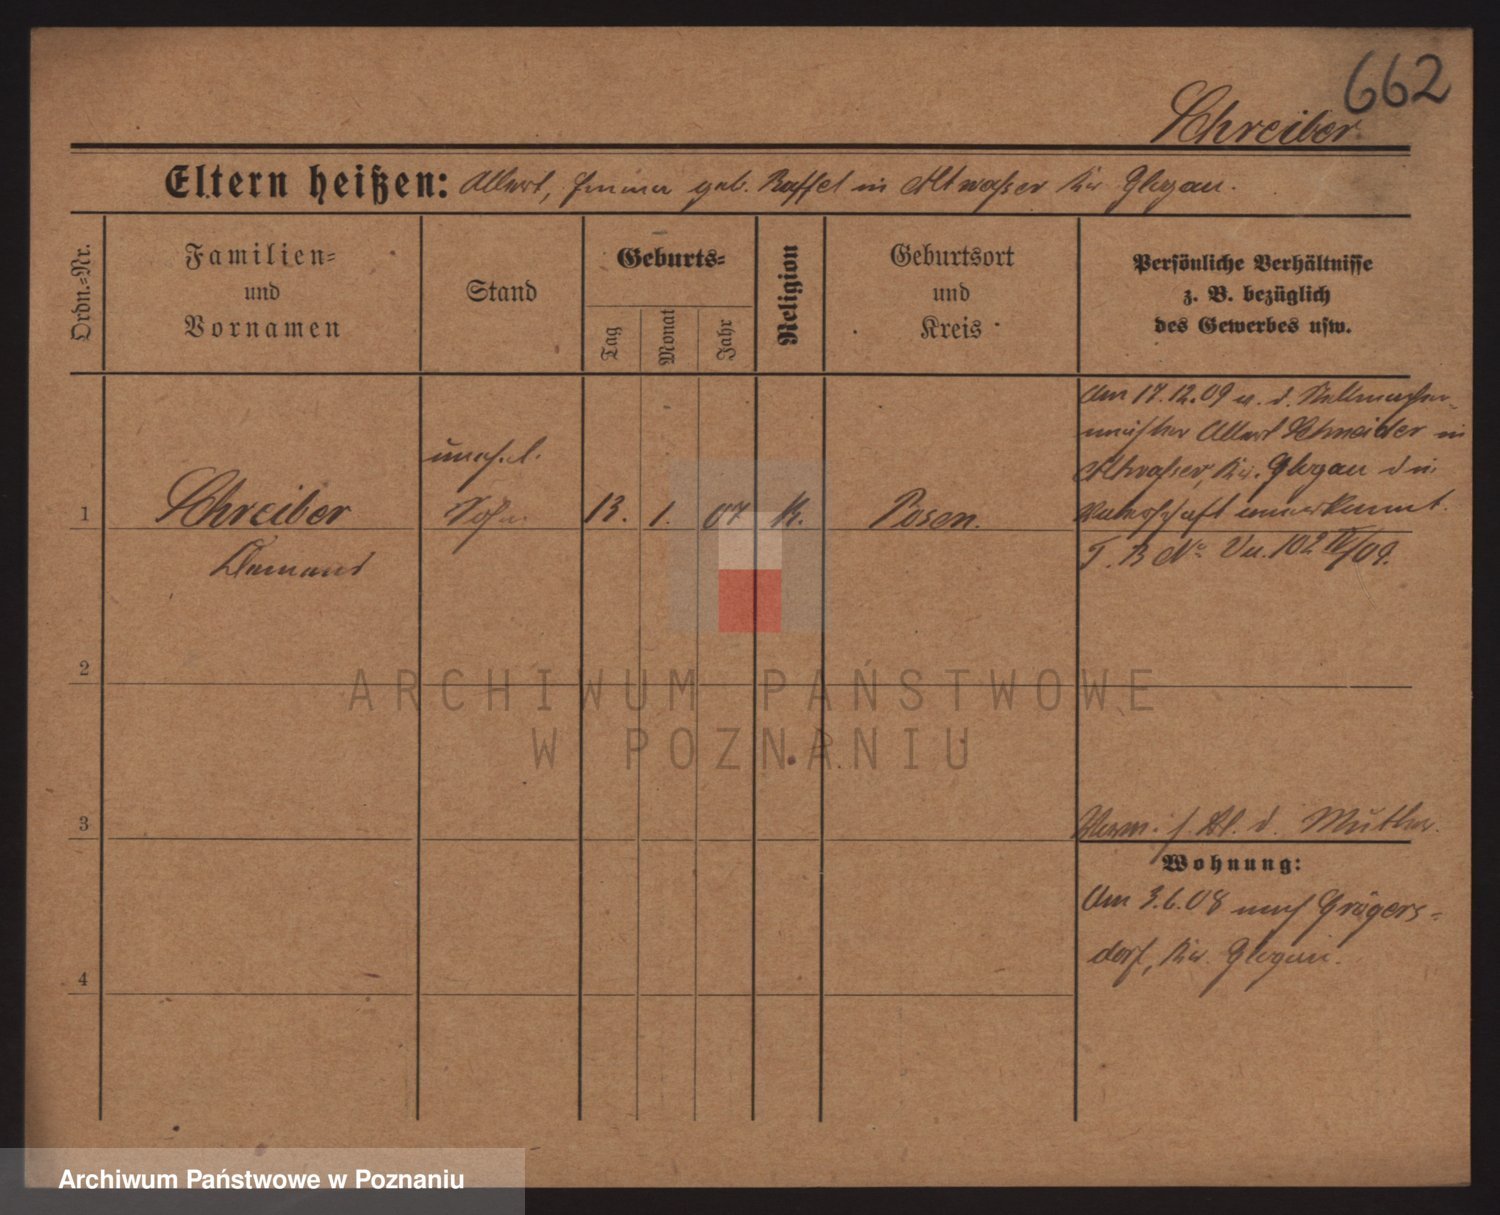 662
Schreiber
Eltern heißen: Albert, Emma geb. Raffel in Altwasser Kr. Glogau.
Ordn.-Nr.
Familien-
und
Vornamen
Stand
Geburts-
Tag
Monat
Jahr
Religion
Geburtsort
und
Kreis
Persönliche Verhältnisse
z. B. bezüglich
des Gewerbes usw.
1
Schreiber
unehel.
Sohn
13.
1.
07
k.
Posen.
Am 17.12.09 v. d. Stellmacher-
meister Albert Schneider in
Altwasser, Kr. Glogau die
Vaterschaft anerkannt.
T. B. No 102 IV/09.
2
3
4
Verm. s. Bl. d. Mutter.
Wohnung:
Am 3.6.08 nach Grögers-
dorf, Kr. Glogau.
ARCHIWUM PAŃSTWOWE
W POZNANIU
Archiwum Państwowe w Poznaniu